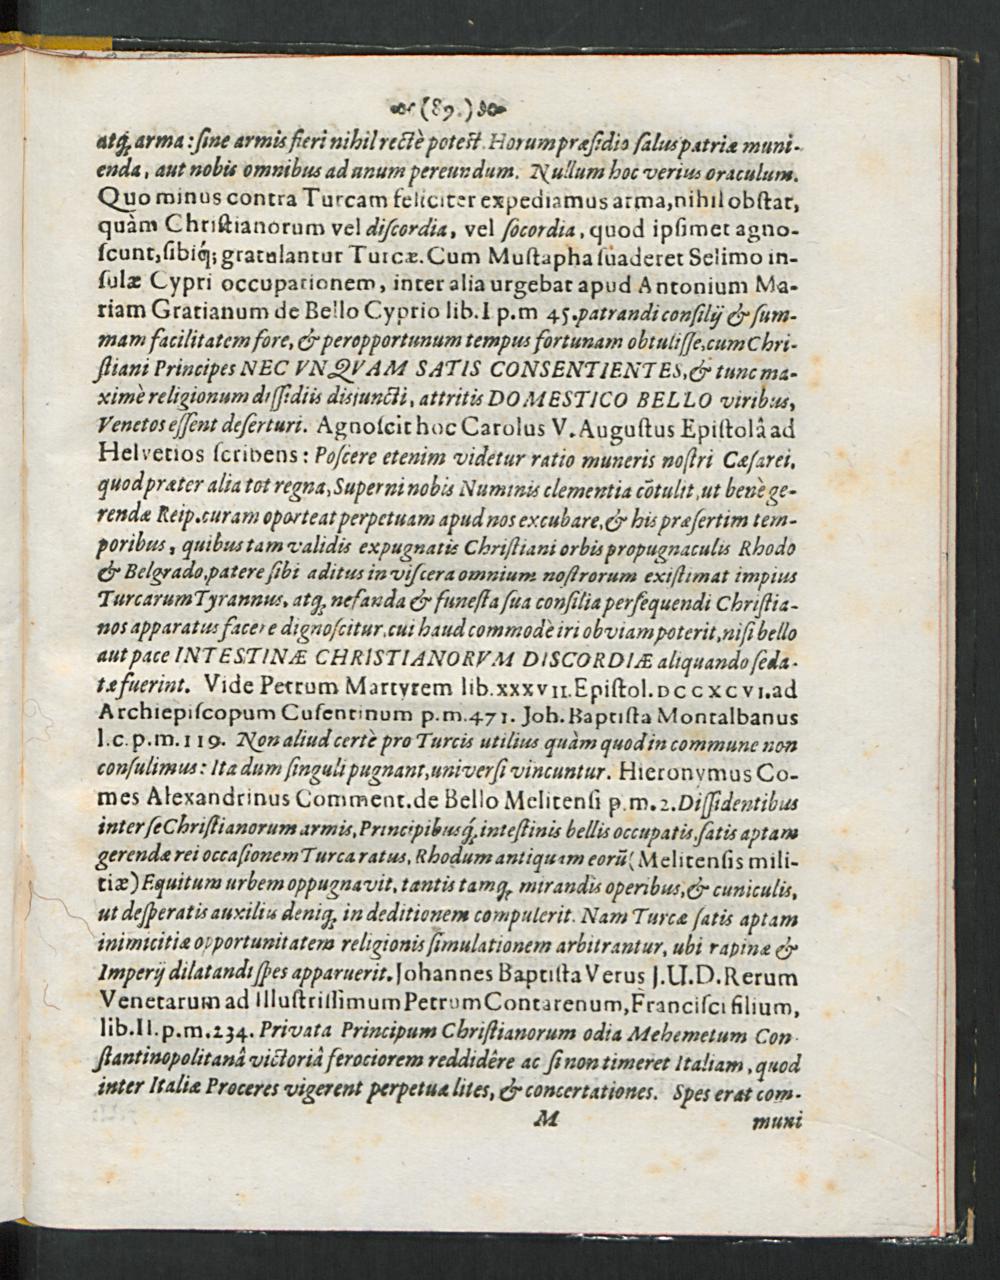 (89.)
atq́, arma : ſine armis fieri nihil rectè potest. Horum præſidio ſalus patriæ muni-
enda, aut nobis omnibus ad unum pereundum. Nullum hoc verius oraculum.
Quo minus contra Turcam feliciter expediamus arma, nihil obſtat,
quàm Chriſtianorum vel diſcordia, vel ſocordia, quod ipſimet agno-
ſcunt, ſibiq́; gratulantur Turcæ. Cum Muſtapha ſuaderet Selimo in-
ſulæ Cypri occupationem, inter alia urgebat apud Antonium Ma-
riam Gratianum de Bello Cyprio lib. I p.m 45. patrandi conſilij & ſum-
mam facilitatem fore, & peropportunum tempus fortunam obtuliſſe, cum Chri-
ſtiani Principes NEC VNQVAM SATIS CONSENTIENTES, & tunc ma-
ximè religionum diſſidiis disjuncti, attritis DOMESTICO BELLO viribus,
Venetos eſſent deſerturi. Agnoſcit hoc Carolus V. Auguſtus Epiſtolâ ad
Helvetios ſcribens : Poſcere etenim videtur ratio muneris noſtri Cæſarei,
quod præter alia tot regna, Superni nobis Numinis clementia cõtulit, ut benè ge-
rendæ Reip. curam oporteat perpetuam apud nos excubare, & his præſertim tem-
poribus, quibus tam validis expugnatis Chriſtiani orbis propugnaculis Rhodo
& Belgrado, patere ſibi aditus in viſcera omnium noſtrorum exiſtimat impius
Turcarum Tyrannus, atq́, nefanda & funeſta ſua conſilia perſequendi Chriſtia-
nos apparatus facere dignoſcitur, cui haud commodè iri obviam poterit, niſi bello
aut pace INTESTINÆ CHRISTIANORVM DISCORDIÆ aliquando ſeda-
tæ fuerint. Vide Petrum Martyrem lib. XXXVII. Epiſtol. DCCXCVI. ad
Archiepiſcopum Cuſentinum p.m. 471. Joh. Baptiſta Montalbanus
l.c. p.m. 119. Non aliud certè pro Turcis utilius quàm quod in commune non
conſulimus : Ita dum ſinguli pugnant, univerſi vincuntur. Hieronymus Co-
mes Alexandrinus Comment. de Bello Melitenſi p.m. 2. Diſſidentibus
inter ſe Chriſtianorum armis, Principibusq́, inteſtinis bellis occupatis, ſatis aptam
gerendæ rei occaſionem Turca ratus, Rhodum antiquam eorũ (Melitenſis mili-
tiæ) Equitum urbem oppugnavit, tantis tamq́, mirandis operibus, & cuniculis,
ut deſperatis auxiliis deniq́, in deditionem compulerit. Nam Turcæ ſatis aptam
inimicitiæ opportunitatem religionis ſimulationem arbitrantur, ubi rapinæ &
Imperij dilatandi ſpes apparuerit. Johannes Baptiſta Verus J.U.D. Rerum
Venetarum ad Illuſtriſſimum Petrum Contarenum, Franciſci filium,
lib. II. p.m. 234. Privata Principum Chriſtianorum odia Mehemetum Con-
ſtantinopolitanâ victoriâ ferociorem reddidêre ac ſi non timeret Italiam, quod
inter Italiæ Proceres vigerent perpetuæ lites, & concertationes. Spes erat com-
M muni